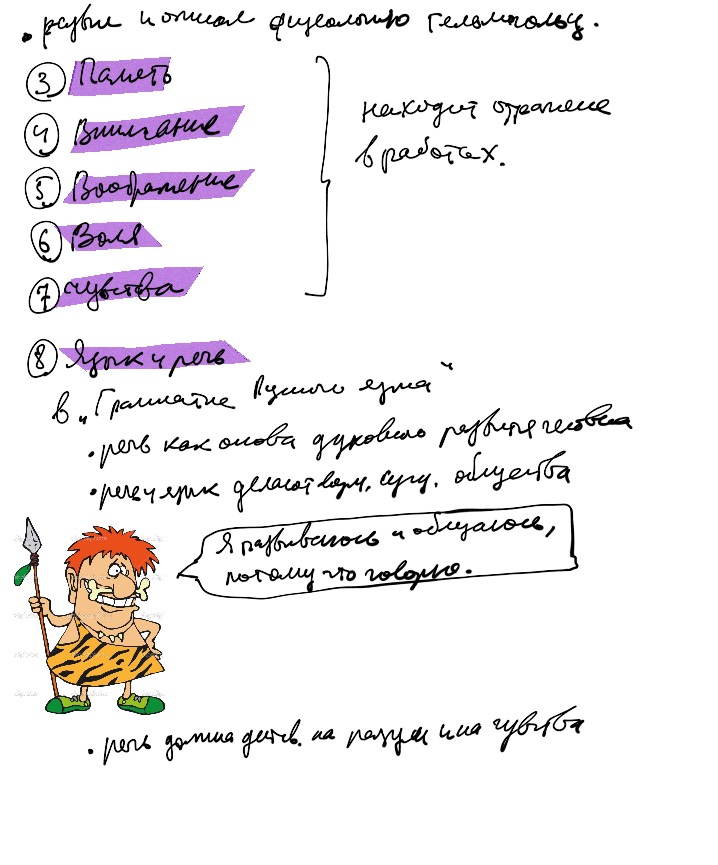 • развил и описал физиологию Гельмгольц.
③ Память
④ Внимание
⑤ Воображение
⑥ Воля
⑦ чувства
находит отражение
в работах.
⑧ Язык и речь
в „Грамматике Русского языка"
• речь как основа духовного развития человека
• речь и язык делают возм. сущ. общества
Я развиваюсь и общаюсь,
потому что говорю.
• речь должна действ. на разум и на чувства